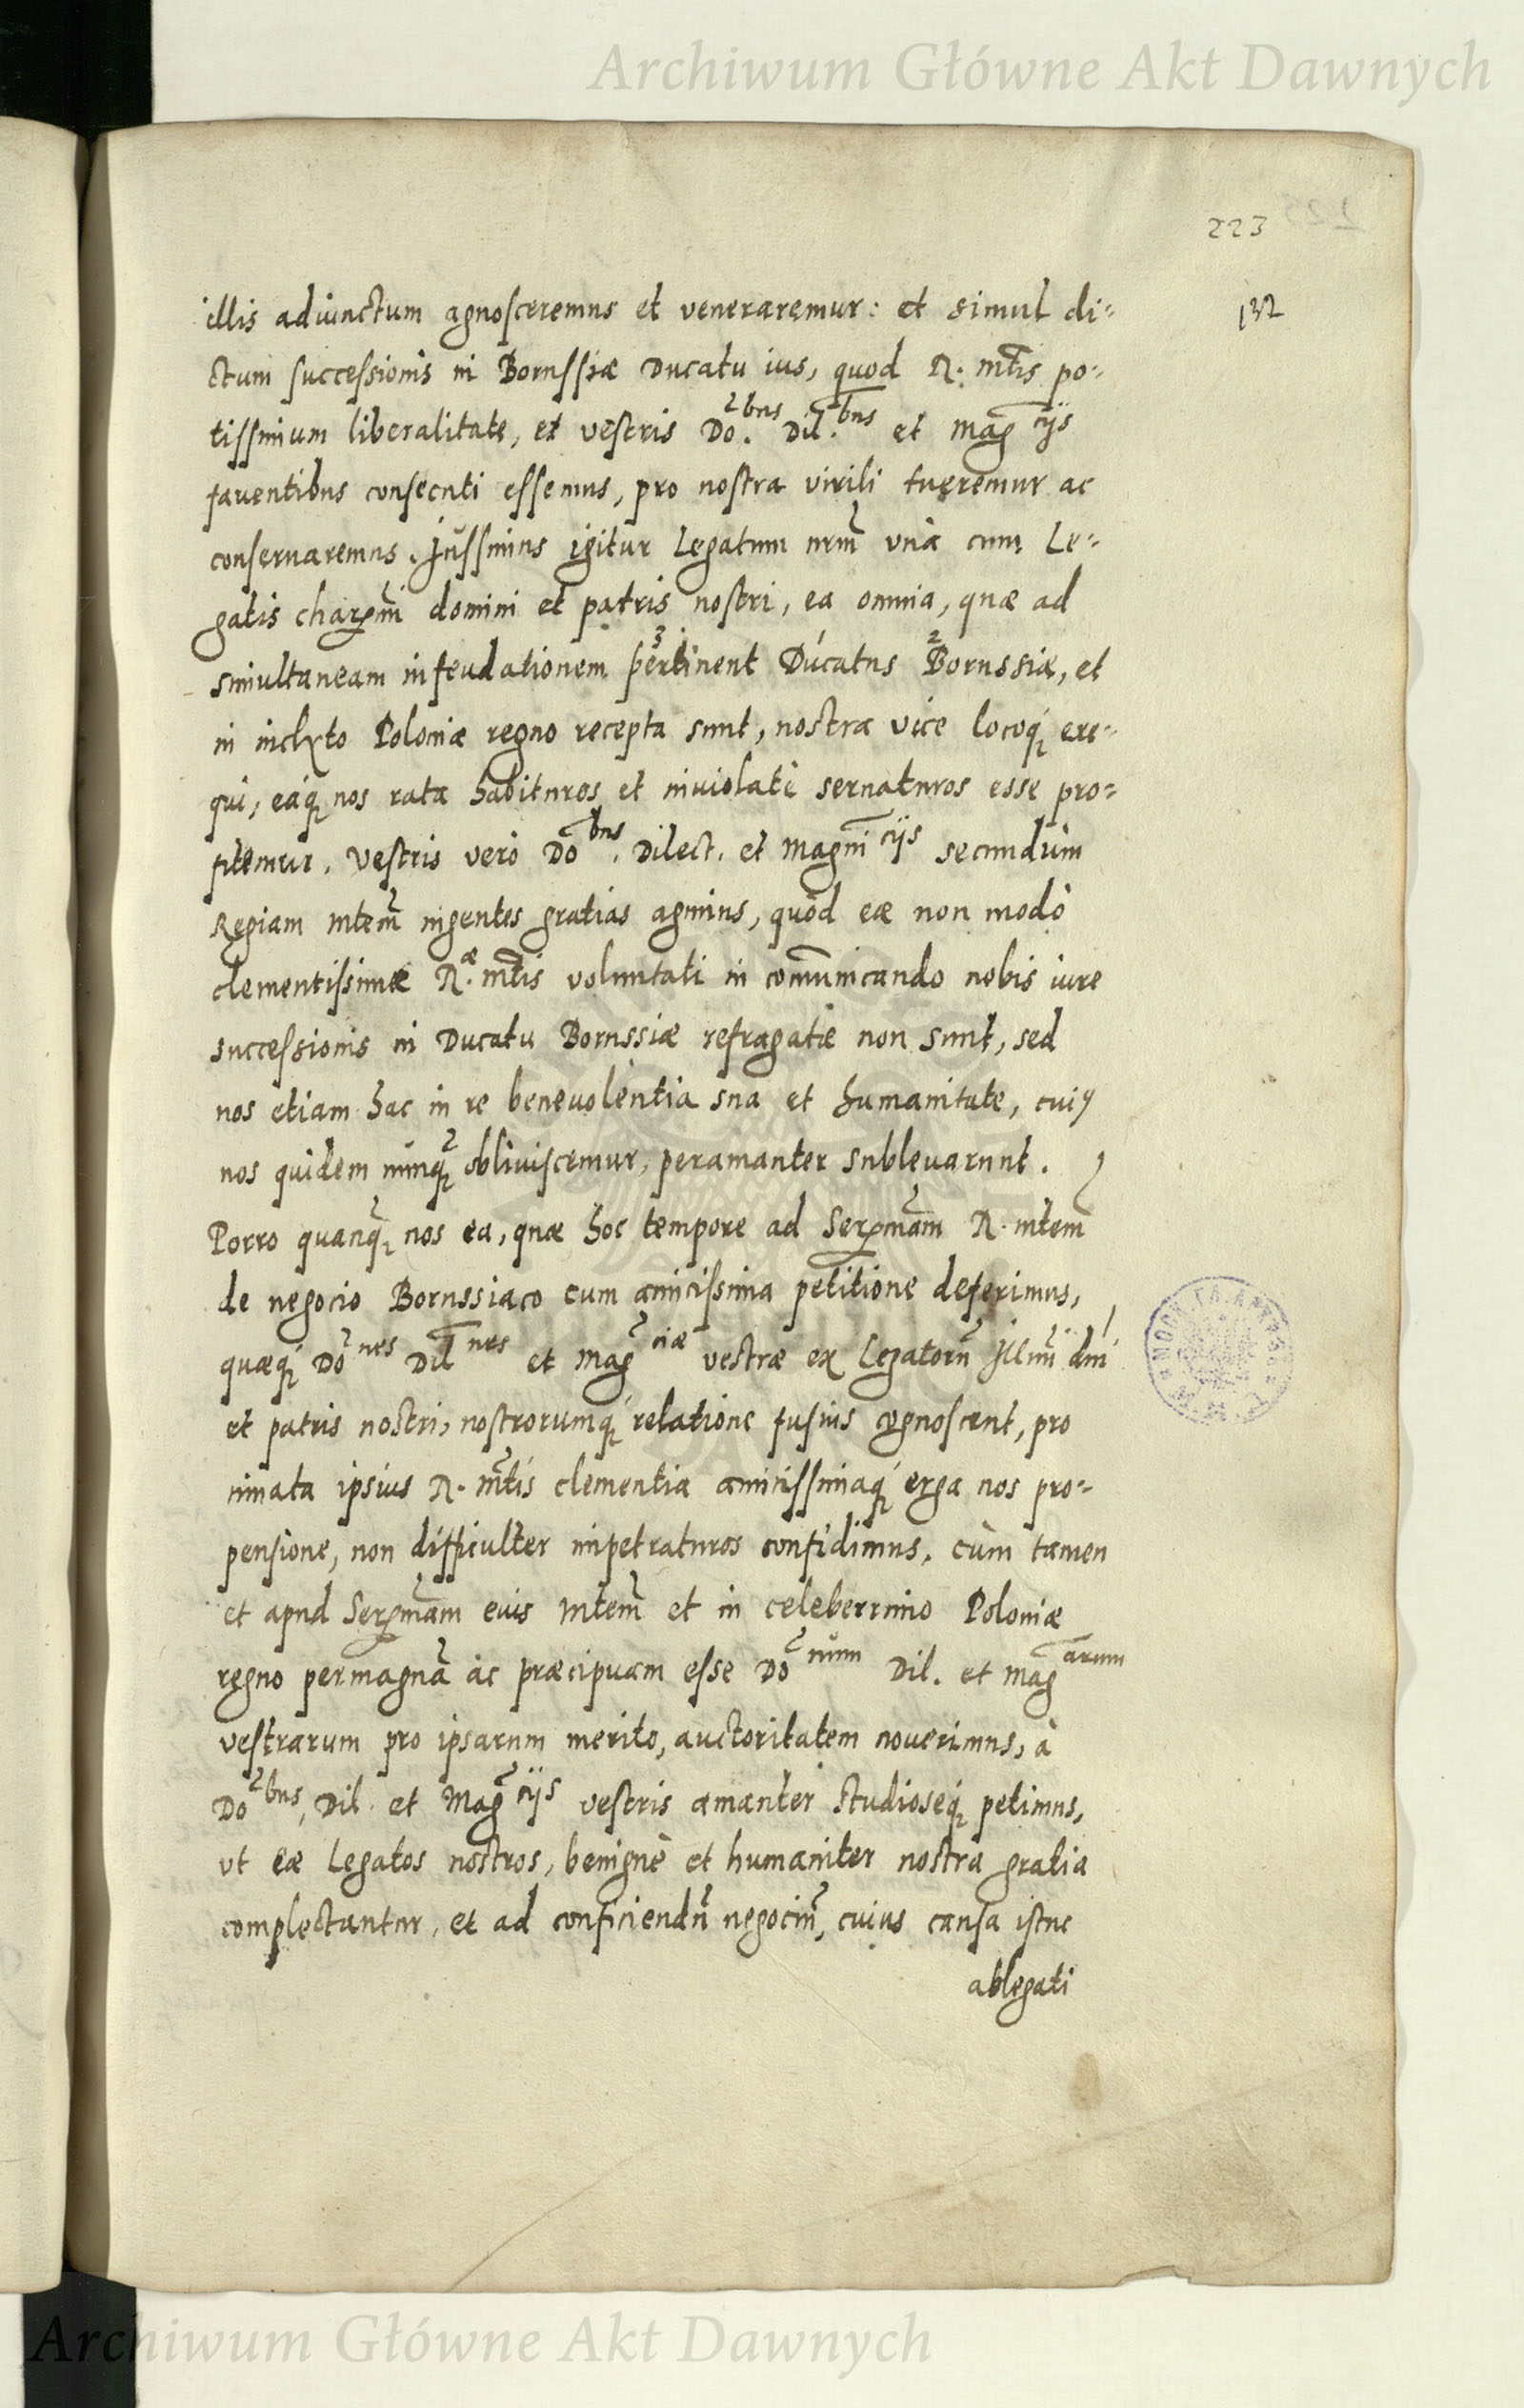 Archiwum Główne Akt Dawnych
223
132
illis adiunctum agnosceremus et veneraremur: et simul di-
ctum successionis in Borussiæ Ducatu ius, quod R. Mtis po-
tissimum liberalitate, et vestris Do.bus Dil.bus et Mag.cijs
fauentibus consecuti essemus, pro nostra virili tueremur ac
conseruaremus. Jussimus igitur Legatum nrm unà cum Le-
gatis charissmi domini et patris nostri, ea omnia, quæ ad
simultaneam infeudationem pertinent Ducatus Borussiæ, et
in inclyto Poloniæ regno recepta sunt, nostra vice locoq exe-
qui, eaq nos rata habituros et inuiolatè seruaturos esse pro-
fitemur. Vestris verò Dobus. Dilect. et Magnicijs secundum
Regiam Mtem ingentes gratias agimus, quòd eæ non modò
clementissimæ R.æ Mtis voluntati in comunicando nobis iure
successionis in Ducatu Borussiæ refragatæ non sunt, sed
nos etiam hac in re beneuolentia sua et humanitate, cuiq
nos quidem nunq obliuiscemur, peramanter subleuarunt.
Porro quanq nos ea, quæ hoc tempore ad Sermam R. Mtem
de negocio Borussiaco cum amicissima petitione deferimus,
quæq Dones Dilnes et Magciæ vestræ ex Legatoru Jllmi dni
et patris nostri, nostrorumq relatione fusius cognoscent, pro
innata ipsius R. Mtis clementia amicissimaq erga nos pro-
pensione, non difficulter impetraturos confidimus. Cùm tamen
et apud Sermam eius Mtem et in celeberrimo Poloniæ
regno permagna ac præcipuam esse Donum Dil. et Magarum
vestrarum pro ipsarum merito, auctoritatem nouerimus, à
Dobus, Dil. et Magcijs vestris amanter studioseq petimus,
ut eæ Legatos nostros, benignè et humaniter nostra gratia
complectantur, et ad conficiendu negociu, cuius causa istuc
ablegati
Archiwum Główne Akt Dawnych